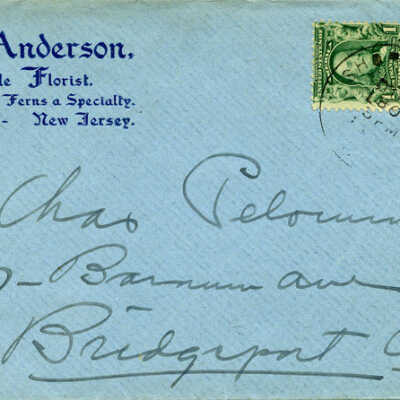 Anderson,
le Florist.
Ferns a Specialty.
- New Jersey.
Chas
- Barnum ave
Bridgeport